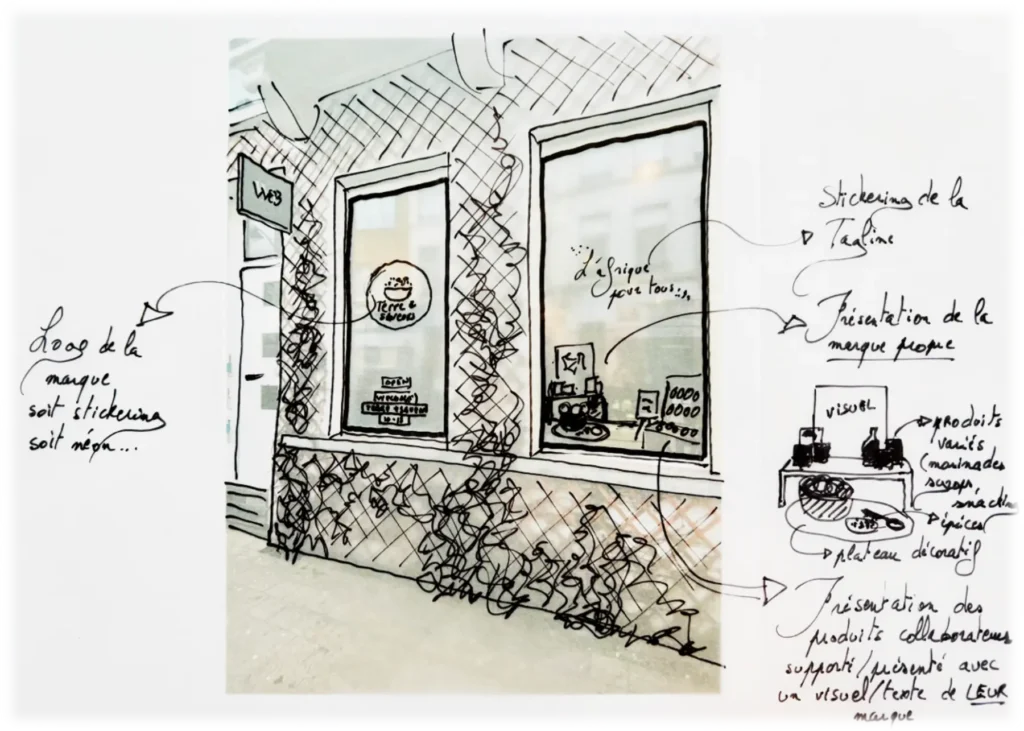 Logo de la
marque
soit stickering
soit néon...
WEB
Terre &
saveurs
OPEN
WELCOME
L'afrique
pour tous...
Stickering de la
Tagline
Présentation de la
marque propre
VISUEL
produits
variés
(marinades
sirops
épices
plateau décoratif
Présentation des
produits collaborateurs
supporté/présenté avec
un visuel/texte de LEUR
marque